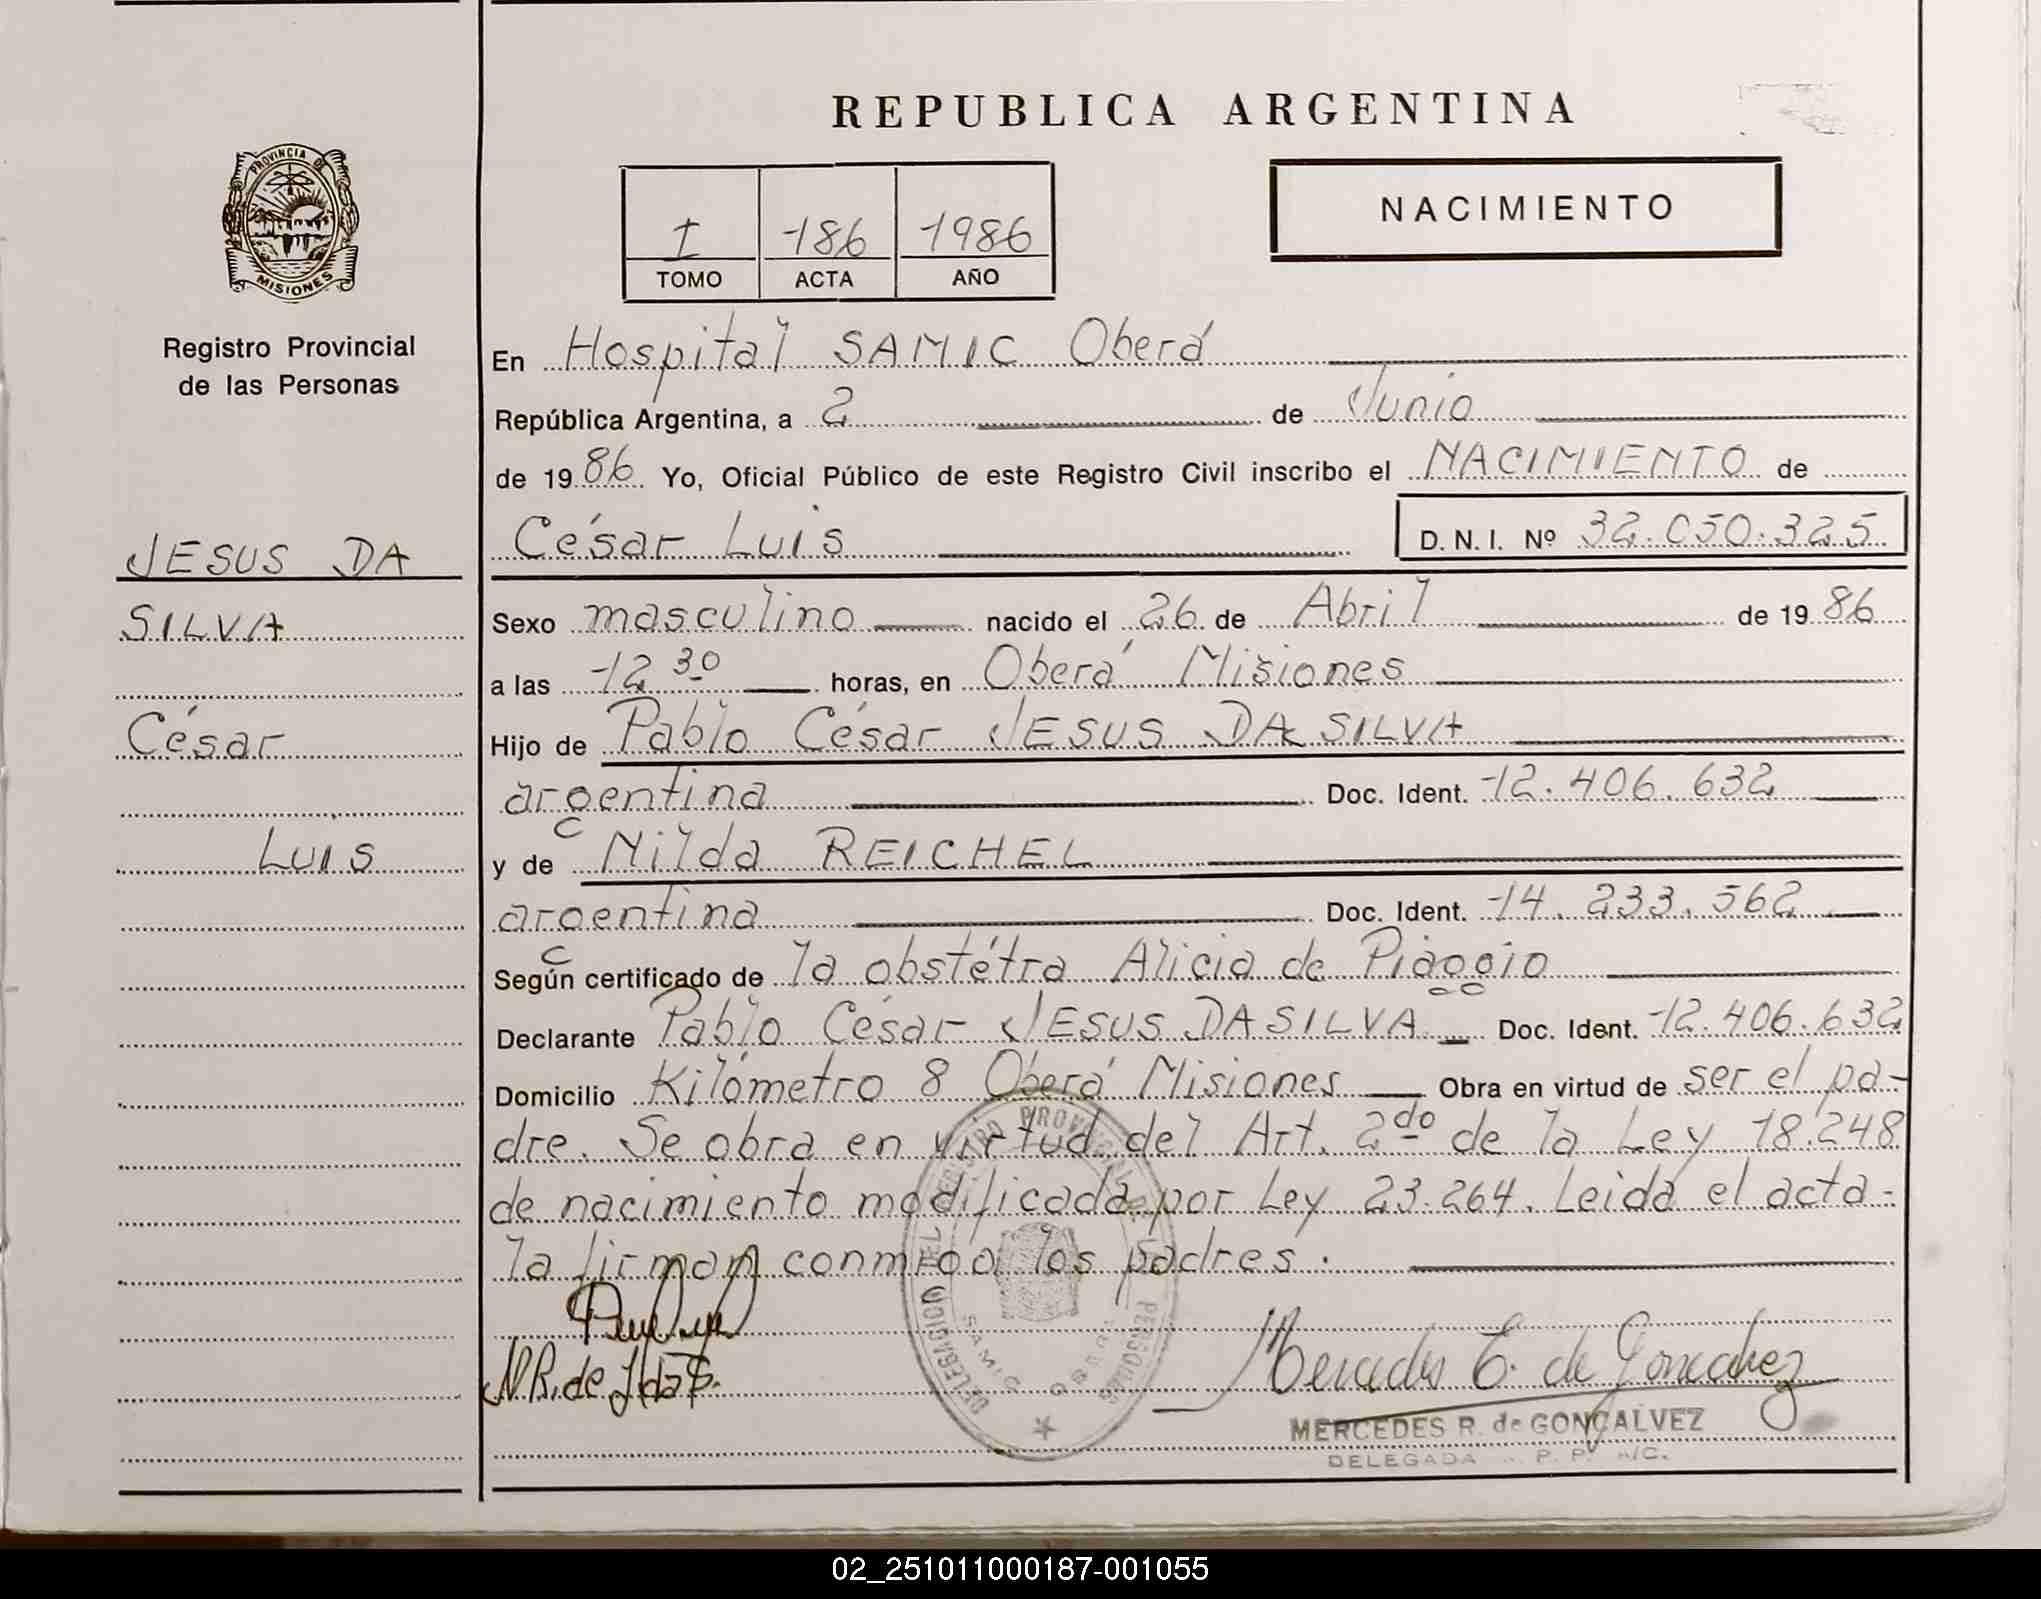 REPUBLICA ARGENTINA
PROVINCIA DE
MISIONES
Registro Provincial
de las Personas
I 186 1986
TOMO ACTA AÑO
NACIMIENTO
JESUS DA
SILVA
César
Luis
En Hospital SAMIC Oberá
República Argentina, a 2 de Junio
de 1986 Yo, Oficial Público de este Registro Civil inscribo el NACIMIENTO de
César Luis D.N.I. Nº 32.050.325
Sexo masculino nacido el 26 de Abril de 1986
a las 12 30 horas, en Oberá Misiones
Hijo de Pablo César JESUS DA SILVA
argentina Doc. Ident. 12.406.632
y de Nilda REICHEL
argentina Doc. Ident. 14.233.562
Según certificado de la obstétra Alicia de Piaggio
Declarante Pablo César JESUS DA SILVA Doc. Ident. 12.406.632
Domicilio Kilómetro 8 Oberá Misiones Obra en virtud de ser el pa-
dre. Se obra en virtud del Art. 2do de la Ley 18.248
de nacimiento modificada por Ley 23.264. Leida el acta-
la firman conmigo los padres.
DELEGACION DEL REGISTRO PROVINCIAL DE PERSONAS
SAMIC OBERA
N.R. de J da S.
Mercedes de Goncalvez
MERCEDES R. de GONÇALVEZ
DELEGADA P. P. A/C.
02_251011000187-001055